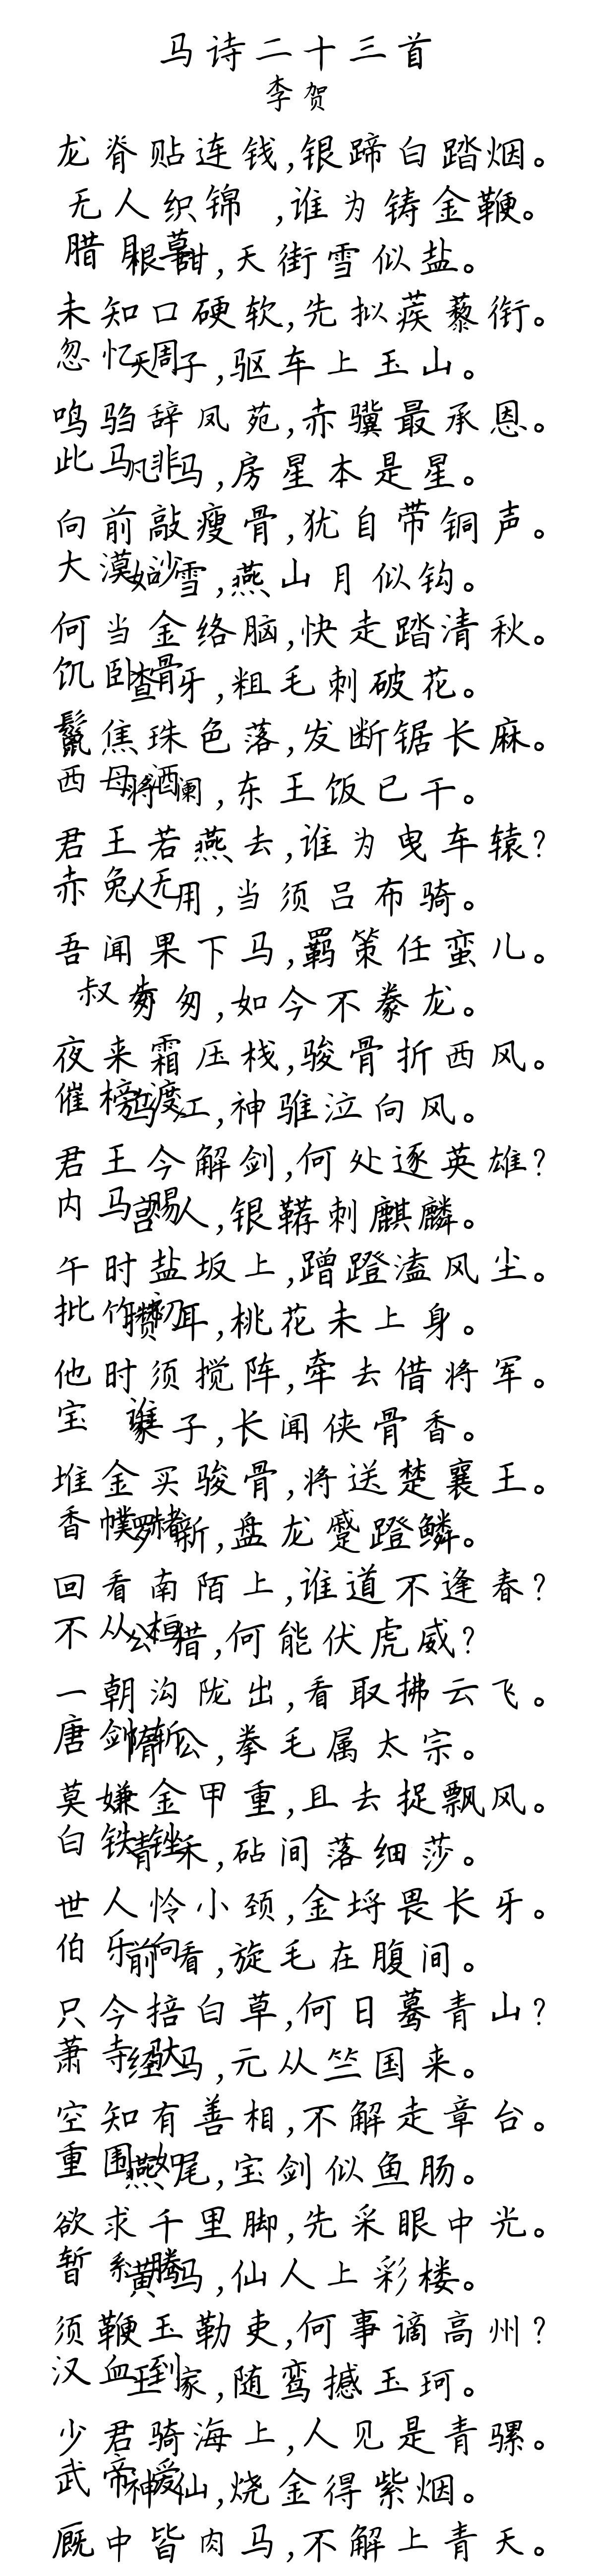 马诗二十三首
李贺
龙脊贴连钱,银蹄白踏烟。
无人织锦 ,谁为铸金鞭。
腊月草根甜,天街雪似盐。
未知口硬软,先拟蒺藜衔。
忽忆周天子,驱车上玉山。
鸣驺辞凤苑,赤骥最承恩。
此马非凡马,房星本是星。
向前敲瘦骨,犹自带铜声。
大漠沙如雪,燕山月似钩。
何当金络脑,快走踏清秋。
饥卧骨查牙,粗毛刺破花。
鬣焦珠色落,发断锯长麻。
西母酒将阑,东王饭已干。
君王若燕去,谁为曳车辕?
赤兔无人用,当须吕布骑。
吾闻果下马,羁策任蛮儿。
叔 去匆匆,如今不豢龙。
夜来霜压栈,骏骨折西风。
催榜渡乌江,神骓泣向风。
君王今解剑,何处逐英雄?
内马赐宫人,银鞯刺麒麟。
午时盐坂上,蹭蹬溘风尘。
批竹初攒耳,桃花未上身。
他时须搅阵,牵去借将军。
宝 谁家子,长闻侠骨香。
堆金买骏骨,将送楚襄王。
香幞赭罗新,盘龙蹙蹬鳞。
回看南陌上,谁道不逢春?
不从桓公猎,何能伏虎威?
一朝沟陇出,看取拂云飞。
唐剑斩隋公,拳毛属太宗。
莫嫌金甲重,且去捉飘风。
白铁锉青禾,砧间落细莎。
世人怜小颈,金埒畏长牙。
伯乐向前看,旋毛在腹间。
只今掊白草,何日蓦青山?
萧寺驮经马,元从竺国来。
空知有善相,不解走章台。
重围如燕尾,宝剑似鱼肠。
欲求千里脚,先采眼中光。
暂系腾黄马,仙人上彩楼。
须鞭玉勒吏,何事谪高州?
汉血到王家,随鸾撼玉珂。
少君骑海上,人见是青骡。
武帝爱神仙,烧金得紫烟。
厩中皆肉马,不解上青天。